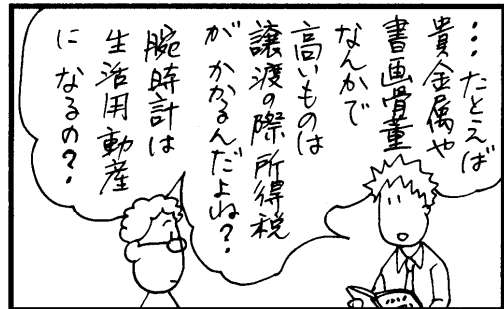 …たとえば
貴金属や
書画骨董
なんかで
高いものは
譲渡の際所得税
がかかるんだよね？
腕時計は
生活用動産
になるの？